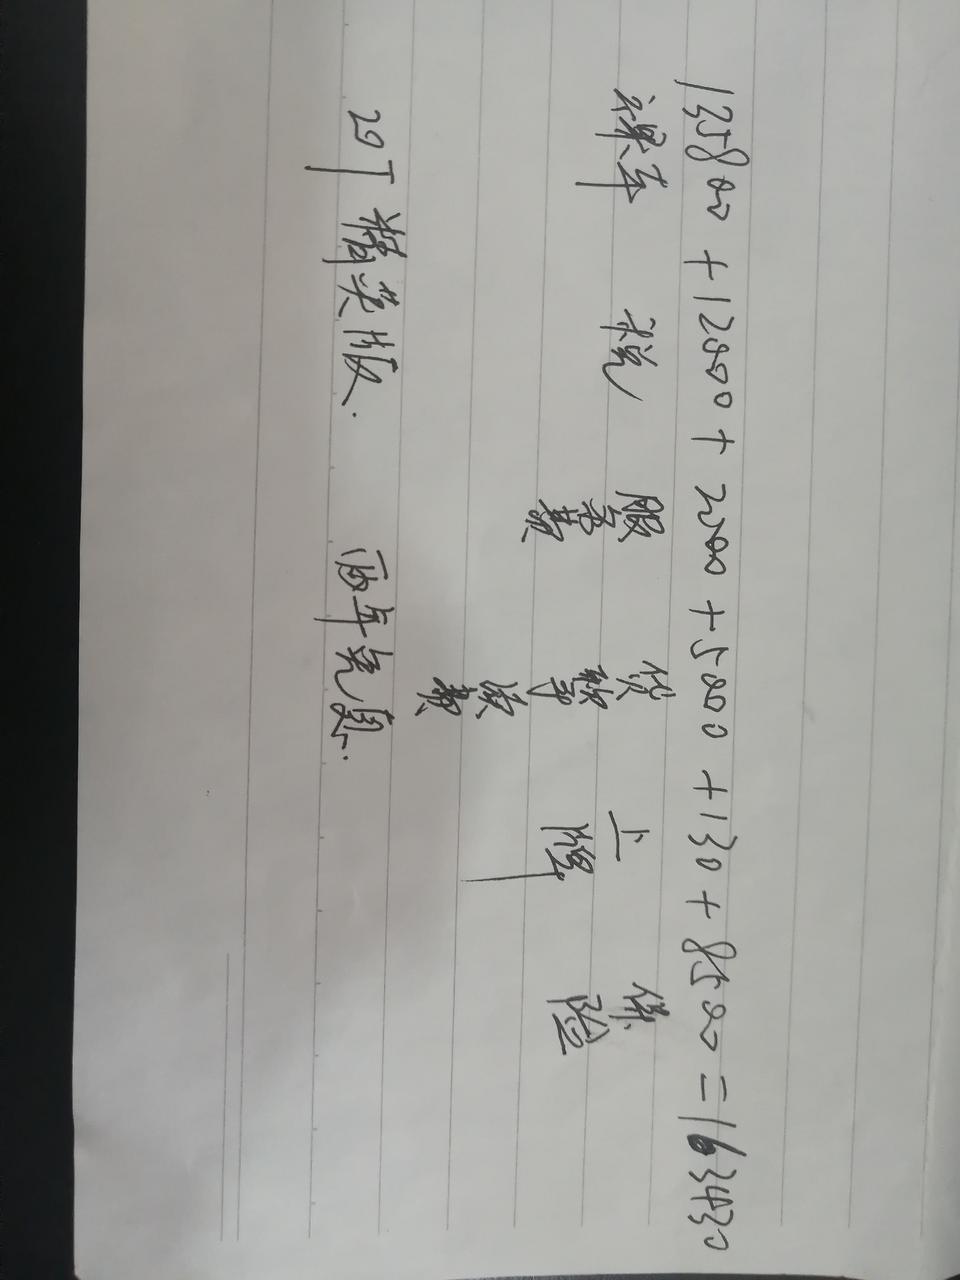 135800 + 12000 + 2000 + 5000 + 130 + 8500 = 163430
裸车 税 服务费 贷款手续费 上牌 保险
20T 精英版. 两年免息.